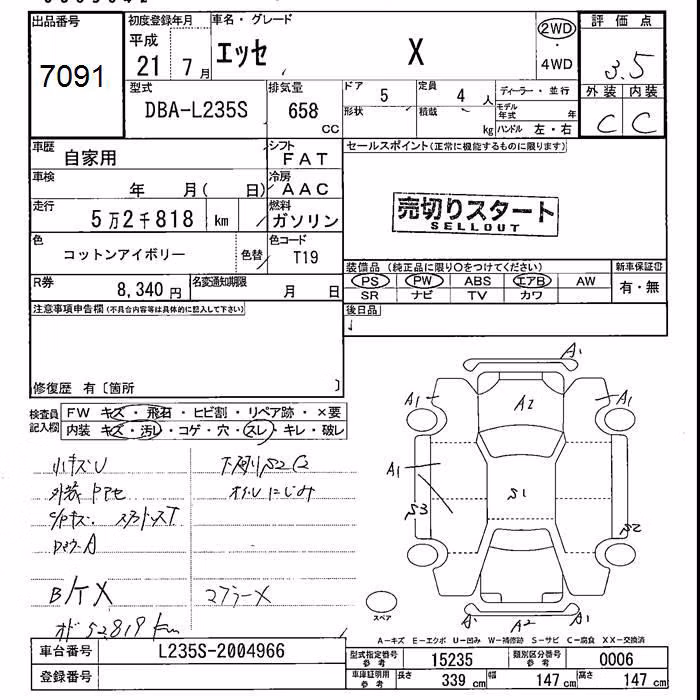 出品番号 初度登録年月 車名・グレード 評価点
7091 平成 21年 7月 エッセ X 2WD・4WD 3.5
型式 排気量 ドア 5 定員 4人 ディーラー・並行 外装 内装
DBA-L235S 658 cc 形状 積載 kg モデル年式 年 ハンドル 左・右 C C
車歴 自家用 シフト FAT セールスポイント(正常に機能するものに限ります)
車検 年 月( 日) 冷房 AAC
走行 5万2千818 km 燃料 ガソリン 売切りスタート
SELLOUT
色 コットンアイボリー 色替 色コード T19
装備品 (純正品に限り○をつけてください) 新車保証書
R券 8,340円 名変通知期限 月 日 PS PW ABS エアB AW 有・無
SR ナビ TV カワ
注意事項申告欄(不具合内容等は具体的に記入して下さい) 後日品
修復歴 有〔箇所 〕
検査員記入欄 FW キズ・飛石・ヒビ割・リペア跡・×要
内装 キズ・汚レ・コゲ・穴・スレ・キレ・破レ
小キズU 下廻りS2C2
外装 オイルにじみ
A
マフラーX
52819km
A1
A1 A2 A1
A1 S1
S3 S2
スペア
A1 A2 A1
A-キズ E-エクボ U-凹み W-補修跡 S-サビ C-腐食 XX-交換済
車台番号 L235S-2004966 型式指定番号 参考 15235 類別区分番号 参考 0006
登録番号 車庫証明用 参考 長さ 339cm 幅 147cm 高さ 147cm